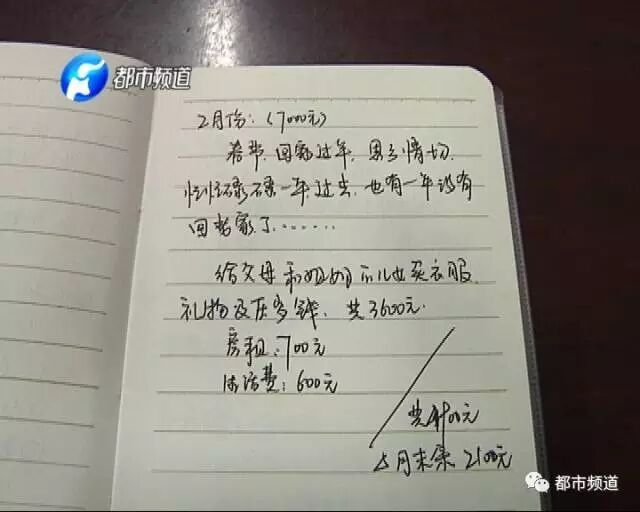 都市频道
2月份:(7000元)
春节,回家过年,思乡情切,
忙忙碌碌一年过去,也有一年没有
回老家了......
给父母和姐姐 儿女买衣服,
礼物及压岁钱,共3600元.
房租:700元
生活费:600元
共4900元
月末余2100元
都市频道